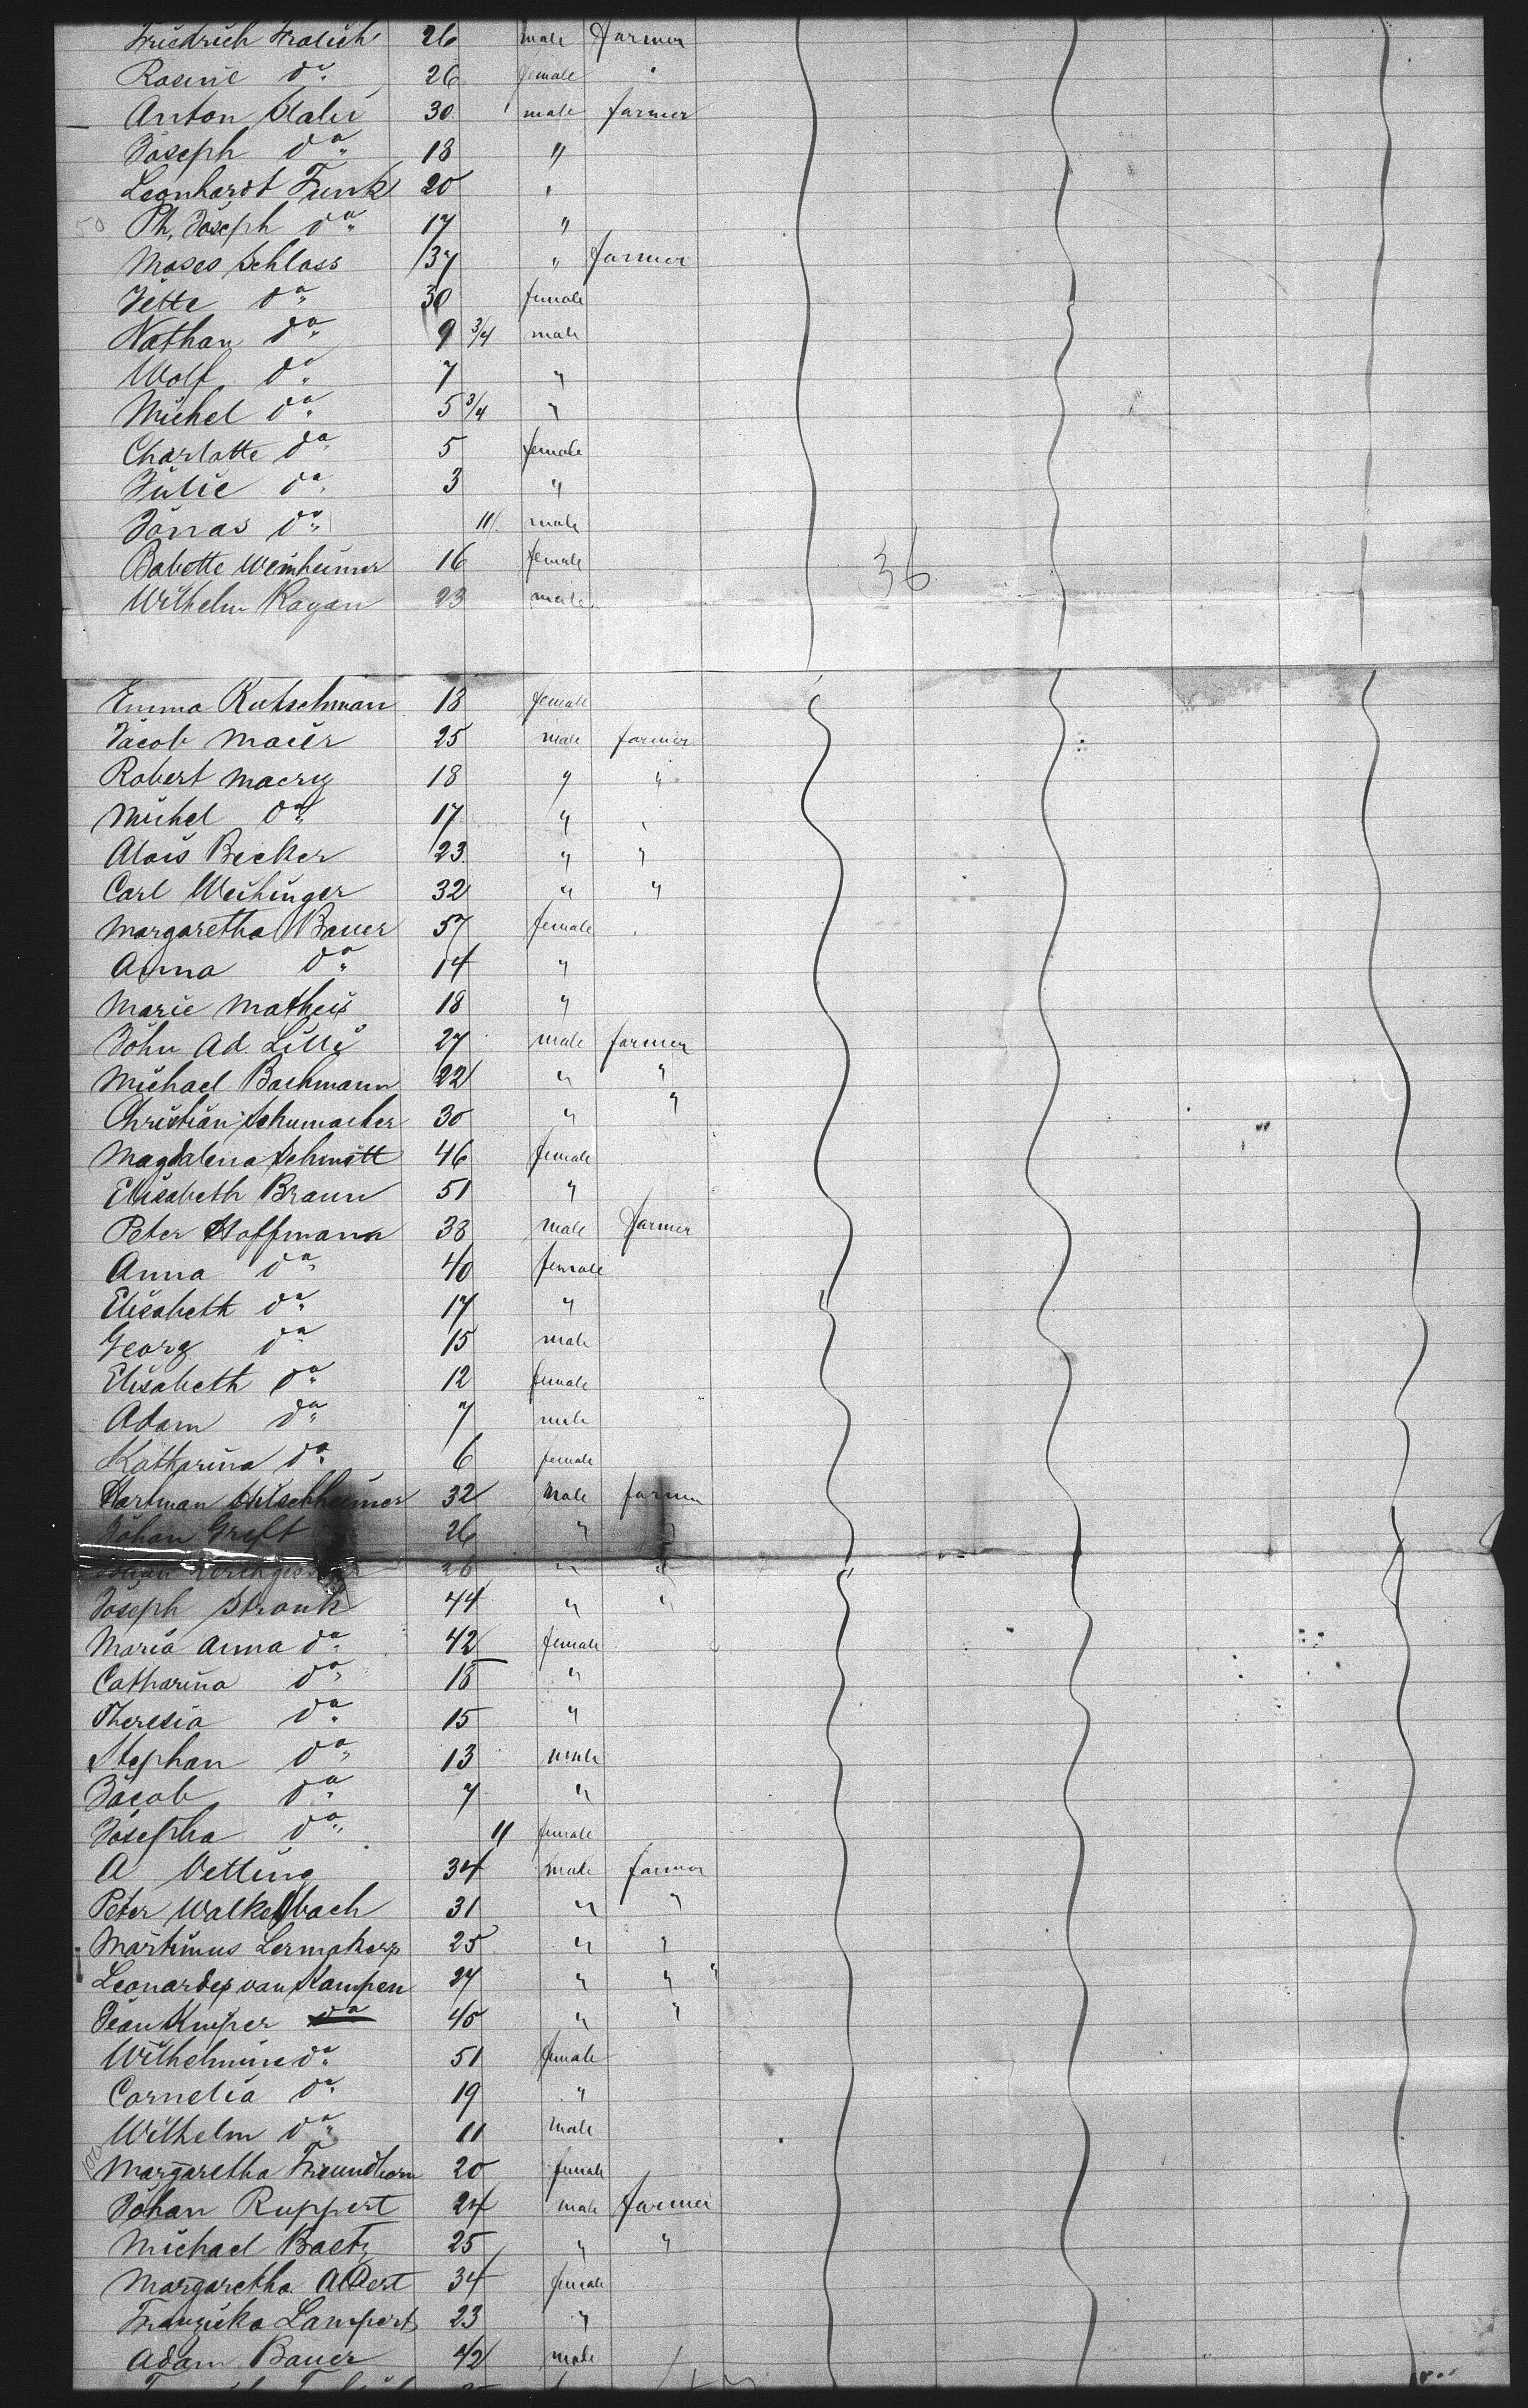 Friedrich Frolich 26 male farmer
Rosine do 26 female "
Anton 30 male farmer
Joseph do 18 "
Leonhardt Funk 20 "
50 Ph. Joseph do 17 "
Moses Schloss 37 " farmer
Jette do 30 female
Nathan do 9 3/4 male
Wolf do 7 "
Michel do 5 3/4 "
Charlotte do 5 female
Julie do 3 "
Jonas do 11 male
Babette Weinheimer 16 female 36
Wilhelm Kagan 23 male
Emma Kutschman 18 female
Jacob Maier 25 male farmer
Robert 18 " "
Michel do 17 " "
Alois Becker 23 " "
Carl Weihinger 32 " "
Margaretha Bauer 57 female
Anna do 14 "
Marie Matheis 18 "
John Ad. Lilli 27 male farmer
Michael Bachmann 22 " "
Christian Schumacher 30 " "
Magdalena Schmitt 46 female
Elisabeth Braun 51 "
Peter Hoffmann 38 male farmer
Anna do 40 female
Elisabeth do 17 "
Georg do 15 male
Elisabeth do 12 female
Adam do 7 male
Katharina do 6 female
Hartman 32 male farmer
Johan Greft 26 " "
26 " "
Joseph Stronk 44 " "
Maria Anna do 42 female
Catharina do 18 "
Theresia do 15 "
Stephan do 13 male
Jacob do 7 "
Josepha do 11 female
A Vetting 34 male farmer
Peter Walkenbach 31 " "
Martinus 25 " "
Leonardus van Kampen 27 " "
Jean Kuiper do 45 " "
Wilhelmine do 51 female
Cornelia do 19 "
Wilhelm do 11 male
100 Margaretha 20 female
Johan Ruppert 24 male farmer
Michael Baetz 25 " "
Margaretha Albert 34 female
Franziska Lampert 23 "
Adam Bauer 42 male